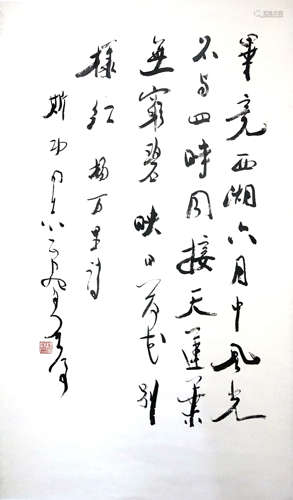 畢竟西湖六月中風光
不與四時同接天蓮葉
無窮碧映日荷花別
樣紅 楊万里詩